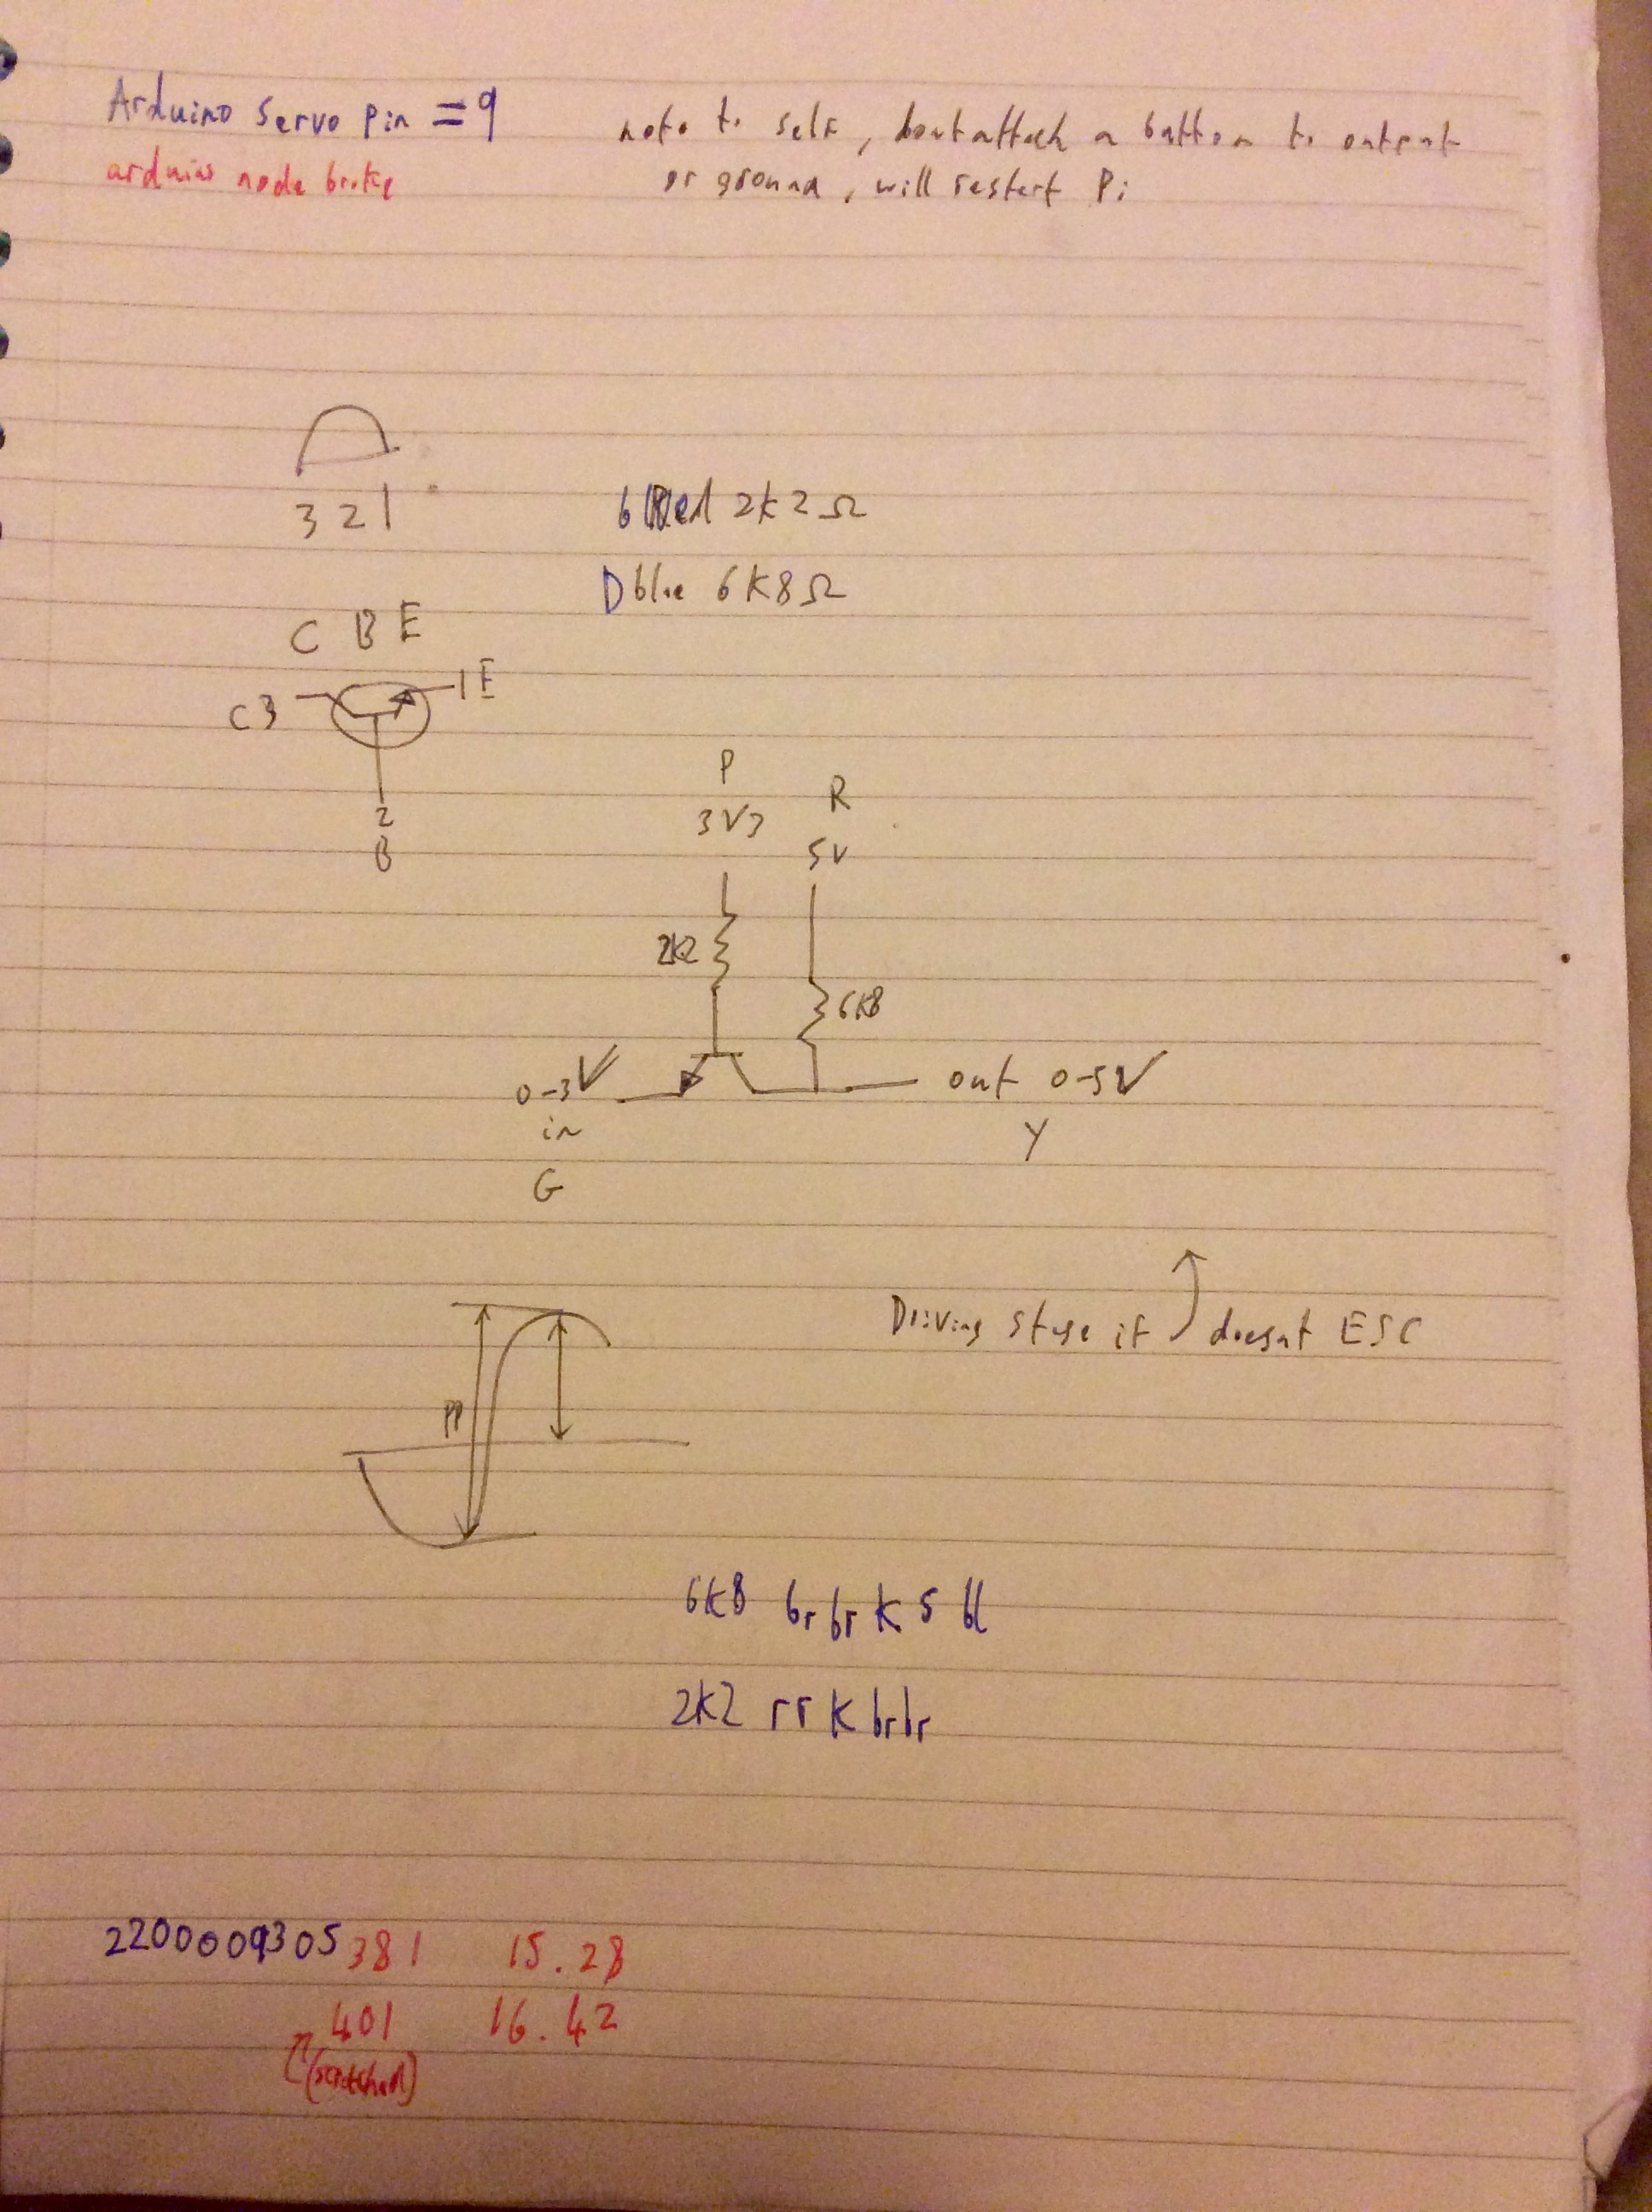 Arduino Servo Pin = 9
arduino node broke
note to self, dont attach a button to output
or ground, will restart Pi
3 2 1
Red 2k2Ω
D blue 6k8Ω
C B E
C3
1E
2
B
P
3V3
R
5V
2k2
6k8
0-3V
in
G
out 0-5V
Y
Driving stage if doesnt ESC
PP
6k8 br br k 5 bl
2k2 r r k br br
2200009305 381 15.28
401 16.42
(scratched)